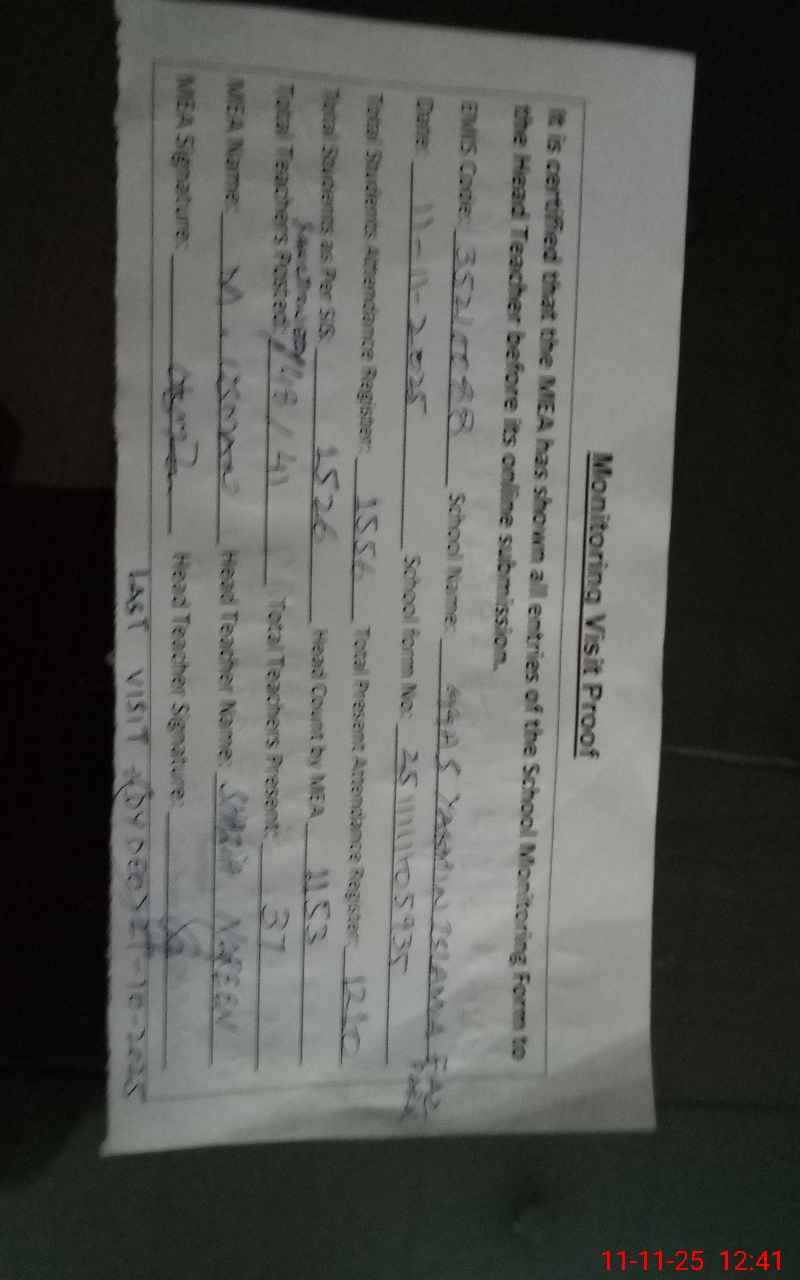 Monitoring Visit Proof
It is certified that the MEA has shown all entries of the School Monitoring Form to
the Head Teacher before its online submission.
EMIS Code: School Name: YASMIN ISLAMA
Date: 11-11-2025 School form No:
Total Students Attendance Register: 1556 Total Present Attendance Register: 1210
Total Students as Per SIS: 1526 Head Count by MEA 1153
Total Teachers Posted: 48 / 41 Total Teachers Present: 37
MEA Name: M. Head Teacher Name: NOREEN
MEA Signature: Head Teacher Signature:
LAST VISIT 21-10-2025
11-11-25 12:41